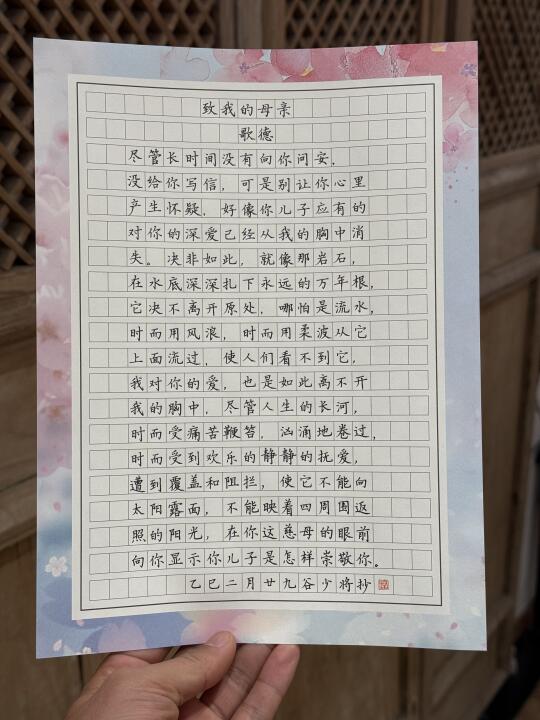 致我的母亲
歌德
尽管长时间没有向你问安，
没给你写信，可是别让你心里
产生怀疑，好像你儿子应有的
对你的深爱已经从我的胸中消
失。决非如此，就像那岩石，
在水底深深扎下永远的万年根，
它决不离开原处，哪怕是流水，
时而用风浪，时而用柔波从它
上面流过，使人们看不到它，
我对你的爱，也是如此离不开
我的胸中，尽管人生的长河，
时而受痛苦鞭笞，汹涌地卷过，
时而受到欢乐的静静的抚爱，
遭到覆盖和阻拦，使它不能向
太阳露面，不能映着四周围返
照的阳光，在你这慈母的眼前
向你显示你儿子是怎样崇敬你。
乙巳二月廿九谷少将抄